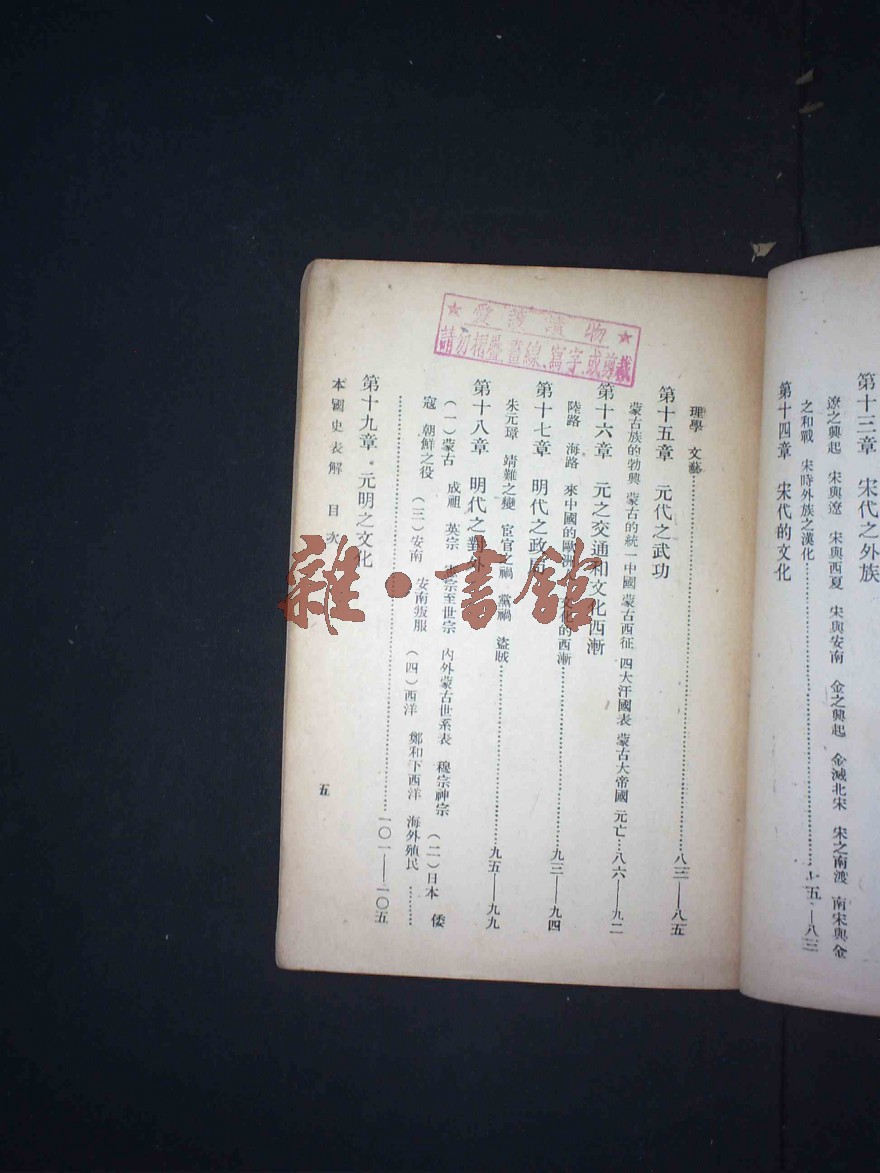 第十三章　宋代之外族
遼之興起　宋與遼　宋與西夏　宋與安南　金之興起　金滅北宋　宋之南渡　南宋與金
之和戰　宋時外族之漢化……七五—八三
第十四章　宋代的文化
理學　文藝……八三—八五
第十五章　元代之武功
蒙古族的勃興　蒙古的統一中國　蒙古西征　四大汗國表　蒙古大帝國　元亡…八六—九二
第十六章　元之交通和文化西漸
陸路　海路　來中國的歐洲　文化的西漸……九三—九四
第十七章　明代之政局
朱元璋　靖難之變　宦官之禍　黨禍　盜賊……九五—九九
第十八章　明代之對外
(一)蒙古　成祖　英宗　宗至世宗　內外蒙古世系表　穆宗神宗　(二)日本　倭
寇　朝鮮之役　(三)安南　安南叛服　(四)西洋　鄭和下西洋　海外殖民……
……一〇一—一〇五
第十九章　元明之文化
本國史表解　目次
五
★愛護讀物★
請勿摺疊、畫線、寫字、或剪裁
雜·書館